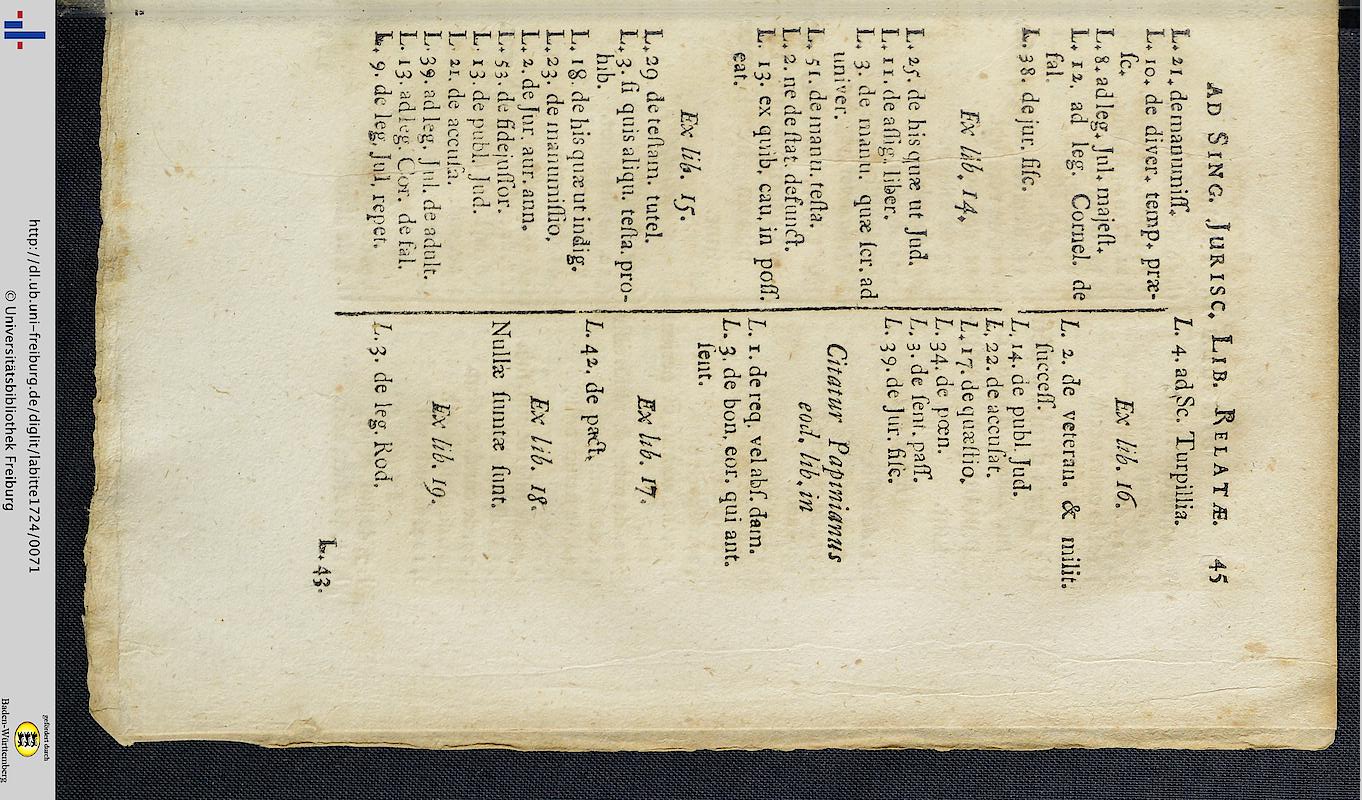 AD SING. JURISC. LIB. RELATÆ. 45
L. 21. de manumiſſ.
L. 10. de diver. temp. præ-
ſc.
L. 8. ad leg. Jul. majeſt.
L. 12. ad leg. Cornel. de
fal.
L. 38. de jur. fiſc.
Ex lib. 14.
L. 25. de his quæ ut Jud.
L. 11. de aſſig. liber.
L. 3. de manu. quæ ſer. ad
univer.
L. 51. de manu. teſta.
L. 2. ne de ſtat. defunct.
L. 13. ex quib. cau. in poſſ.
eat.
Ex lib. 15.
L. 29 de teſtam. tutel.
L. 3. ſi quis aliqu. teſta. pro-
hib.
L. 18. de his quæ ut indig.
L. 23. de manumiſſio.
L. 2. de Jur. aur. ann.
L. 53. de fidejuſſor.
L. 13. de publ. Jud.
L. 21. de accuſa.
L. 39. ad leg. Jul. de adult.
L. 13. ad leg. Cor. de fal.
L. 9. de leg. Jul. repet.
L. 4. ad Sc. Turpillia.
Ex lib. 16.
L. 2. de veteran. & milit.
ſucceſſ.
L. 14. de publ. Jud.
L. 22. de accuſat.
L. 17. de quæſtio.
L. 34. de pœn.
L. 3. de ſent. paſſ.
L. 39. de Jur. fiſc.
Citatur Papinianus
eod. lib. in
L. 1. de req. vel abſ. dam.
L. 3. de bon. eor. qui ant.
ſent.
Ex lib. 17.
L. 42. de pact.
Ex lib. 18.
Nullæ ſumtæ ſunt.
Ex lib. 19.
L. 3. de leg. Rod.
L. 43.
http://dl.ub.uni-freiburg.de/diglit/labitte1724/0071
© Universitätsbibliothek Freiburg
gefördert durch
Baden-Württemberg